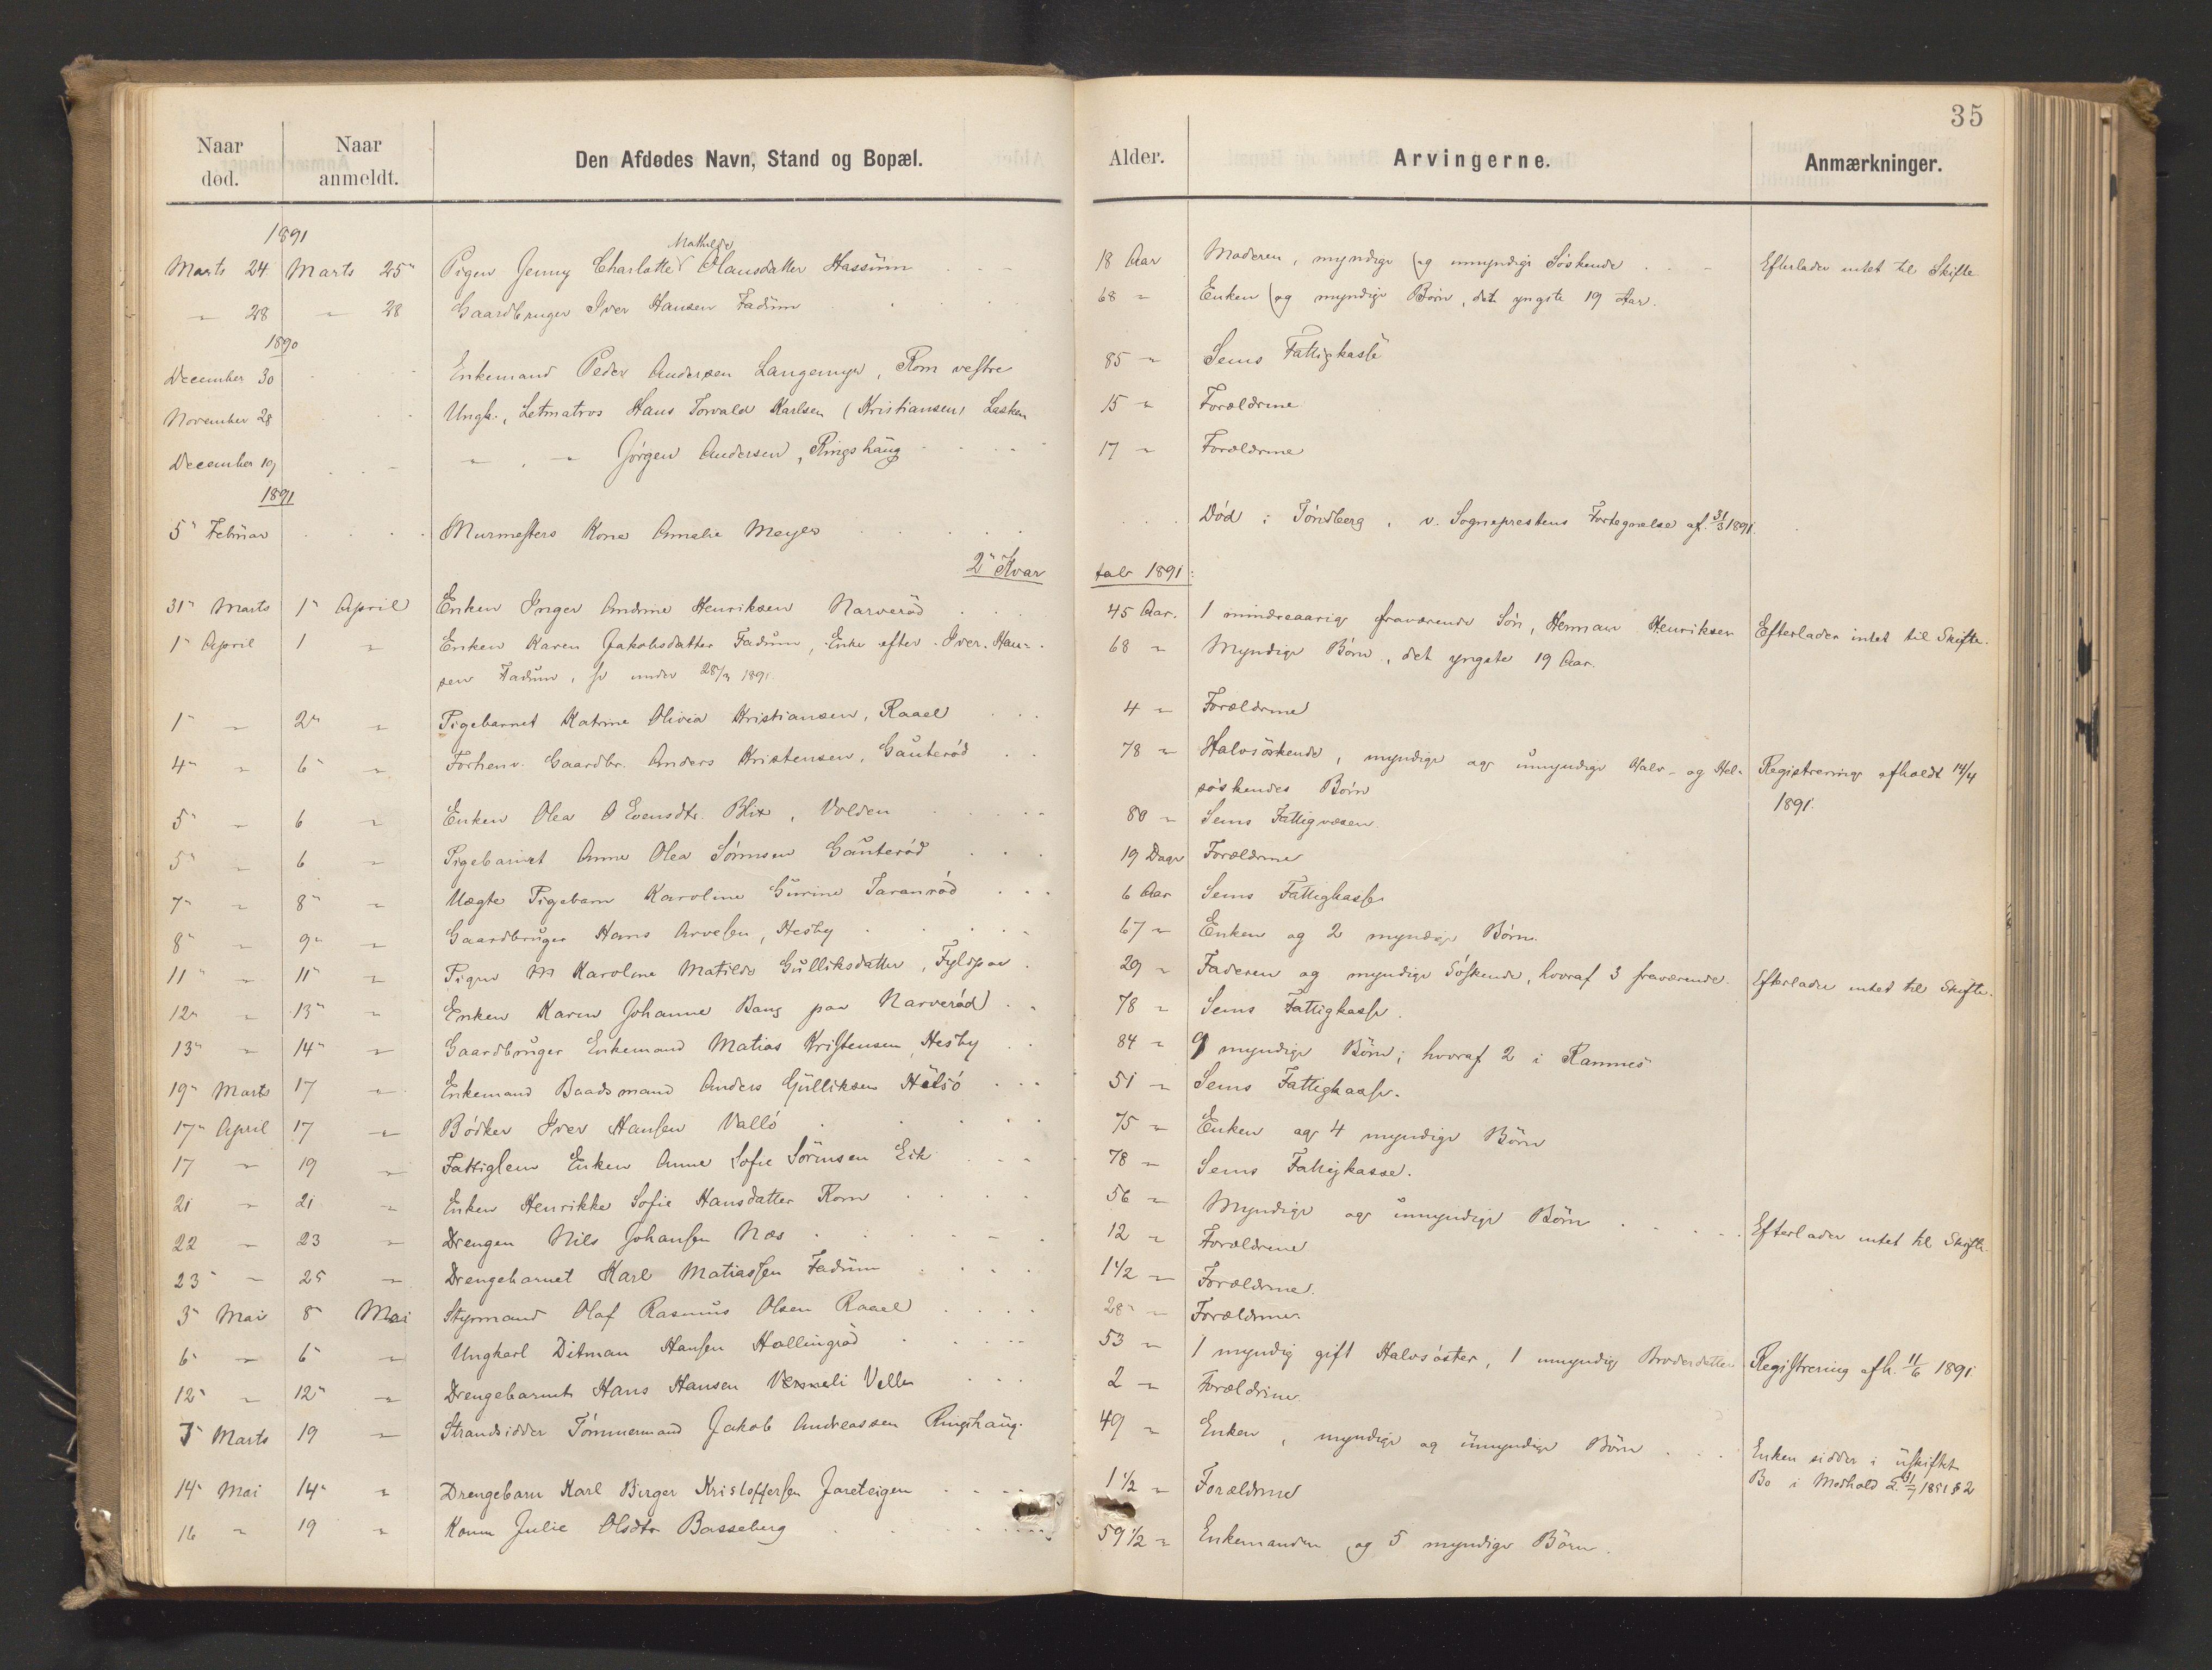 35
Naar død. Naar anmeldt. Den Afdødes Navn, Stand og Bopæl. Alder. Arvingerne. Anmærkninger.
1891
Marts 24 Marts 25" Pigen Jenny Charlotte Mathilde Hansdatter Hassum 18 Aar Moderen, myndige og umyndige Söskende Efterlader intet til Skifte
" 28 " 28 Gaardbruger Iver Hansen Fadum 68 " Enken og myndige Børn, det yngste 19 Aar.
1890
December 30 Enkemand Peder Andersen Langemyr, Rom vestre 85 " Sems Fattigkasse
November 28 Ungk., Letmatros Hans Torvald Karlsen (Kristiansen) Lasken 15 " Forældrene
December 19 " , " Jørgen Andersen, Ringshaug 17 " Forældrene
1891
5" Februar Murmesters Kone Amalie Meyer Död i Tönsberg, v. Sogneprestens Fortegnelse af 31/3 1891.
2" Kvartal 1891:
31" Marts 1" April Enken Inger Andrine Henriksen Narveröd 45 Aar. 1 mindreaarig fraværende Sön, Herman Henriksen Efterlader intet til Skifte.
1" April 1 " Enken Karen Jakobsdatter Fadum, Enke efter Iver Han- 68 " Myndige Börn, det yngste 19 Aar.
sen Fadum, se under 28/3 1891.
1" " 2" " Pigebarnet Katrine Olivia Kristiansen, Raael 4 " Forældrene
4" " 6" " Forhenv. Gaardbr. Anders Kristensen, Gauteröd 78 " Halvsöskende, myndige og umyndige Halv- og Hel- Registrering afholdt 14/4
söskendes Börn 1891.
5" " 6 " Enken Olea O Evensdtr. Blix, Volden 80 " Sems Fattigvæsen.
5" " 6 " Pigebarnet Anne Olea Sörensen Gauteröd 19 Dage Forældrene
7" " 8" " Uægte Pigebarn Karoline Gurine Taranröd 6 Aar Sems Fattigkasse
8" " 9" " Gaardbruger Hans Arvesen, Hesby 67 " Enken og 2 myndige Börn.
11" " 11" " Pigen M Karoline Matilde Gulliksdatter, Fylpaa 29 " Faderen og myndige Söskende, hvoraf 3 fraværende. Efterlader intet til Skifte.
12" " 13" " Enken Karen Johanne Bang paa Narveröd 78 " Sems Fattigkasse.
13" " 14" " Gaardbruger Enkemand Matias Kristensen, Hesby 84 " 9 myndige Börn; hvoraf 2 i Ramnes
19" Marts 17 " Enkemand Baadsmand Anders Gulliksen Hulsö 51 " Sems Fattigkasse.
17" April 17 " Bödker Iver Hansen Vallö 75 " Enken og 4 myndige Börn
17 " 19 " Fattiglem Enken Anne Sofie Sörensen Eik 78 " Sems Fattigkasse.
21 " 21 " Enken Henrikke Sofie Hansdatter Rom 56 " Myndige og umyndige Börn Efterlader intet til Skifte.
22 " 23 " Drengen Nils Johansen Næs 12 " Forældrene
23" " 25 " Drengebarnet Karl Matiassen Fadum 1 1/2 " Forældrene.
3" Mai 8" Mai Styrmand Olaf Rasmus Olsen Raael 28" " Forældrene.
6" " 6" " Ungkarl Ditman Hansen Hallingröd 53 " 1 myndig gift Halvsöster, 1 umyndig Broderdatter Registrering afh. 11/6 1891.
12" " 12" " Drengebarnet Hans Hansen Velle 2 " Forældrene.
7" Marts 19 " Strandsidder Tömmermand Jakob Andreassen Ringshaug. 49 " Enken, myndige og umyndige Börn Enken sidder i uskiftet
Bo i Medhold L. 31/7 1851 § 2
14" Mai 14" " Drengebarn Karl Birger Kristoffersen Jareteigen 1 1/2 " Forældrene
16 " 19 " Konen Julie Olsdtr Basseberg 59 1/2 " Enkemanden og 5 myndige Börn.